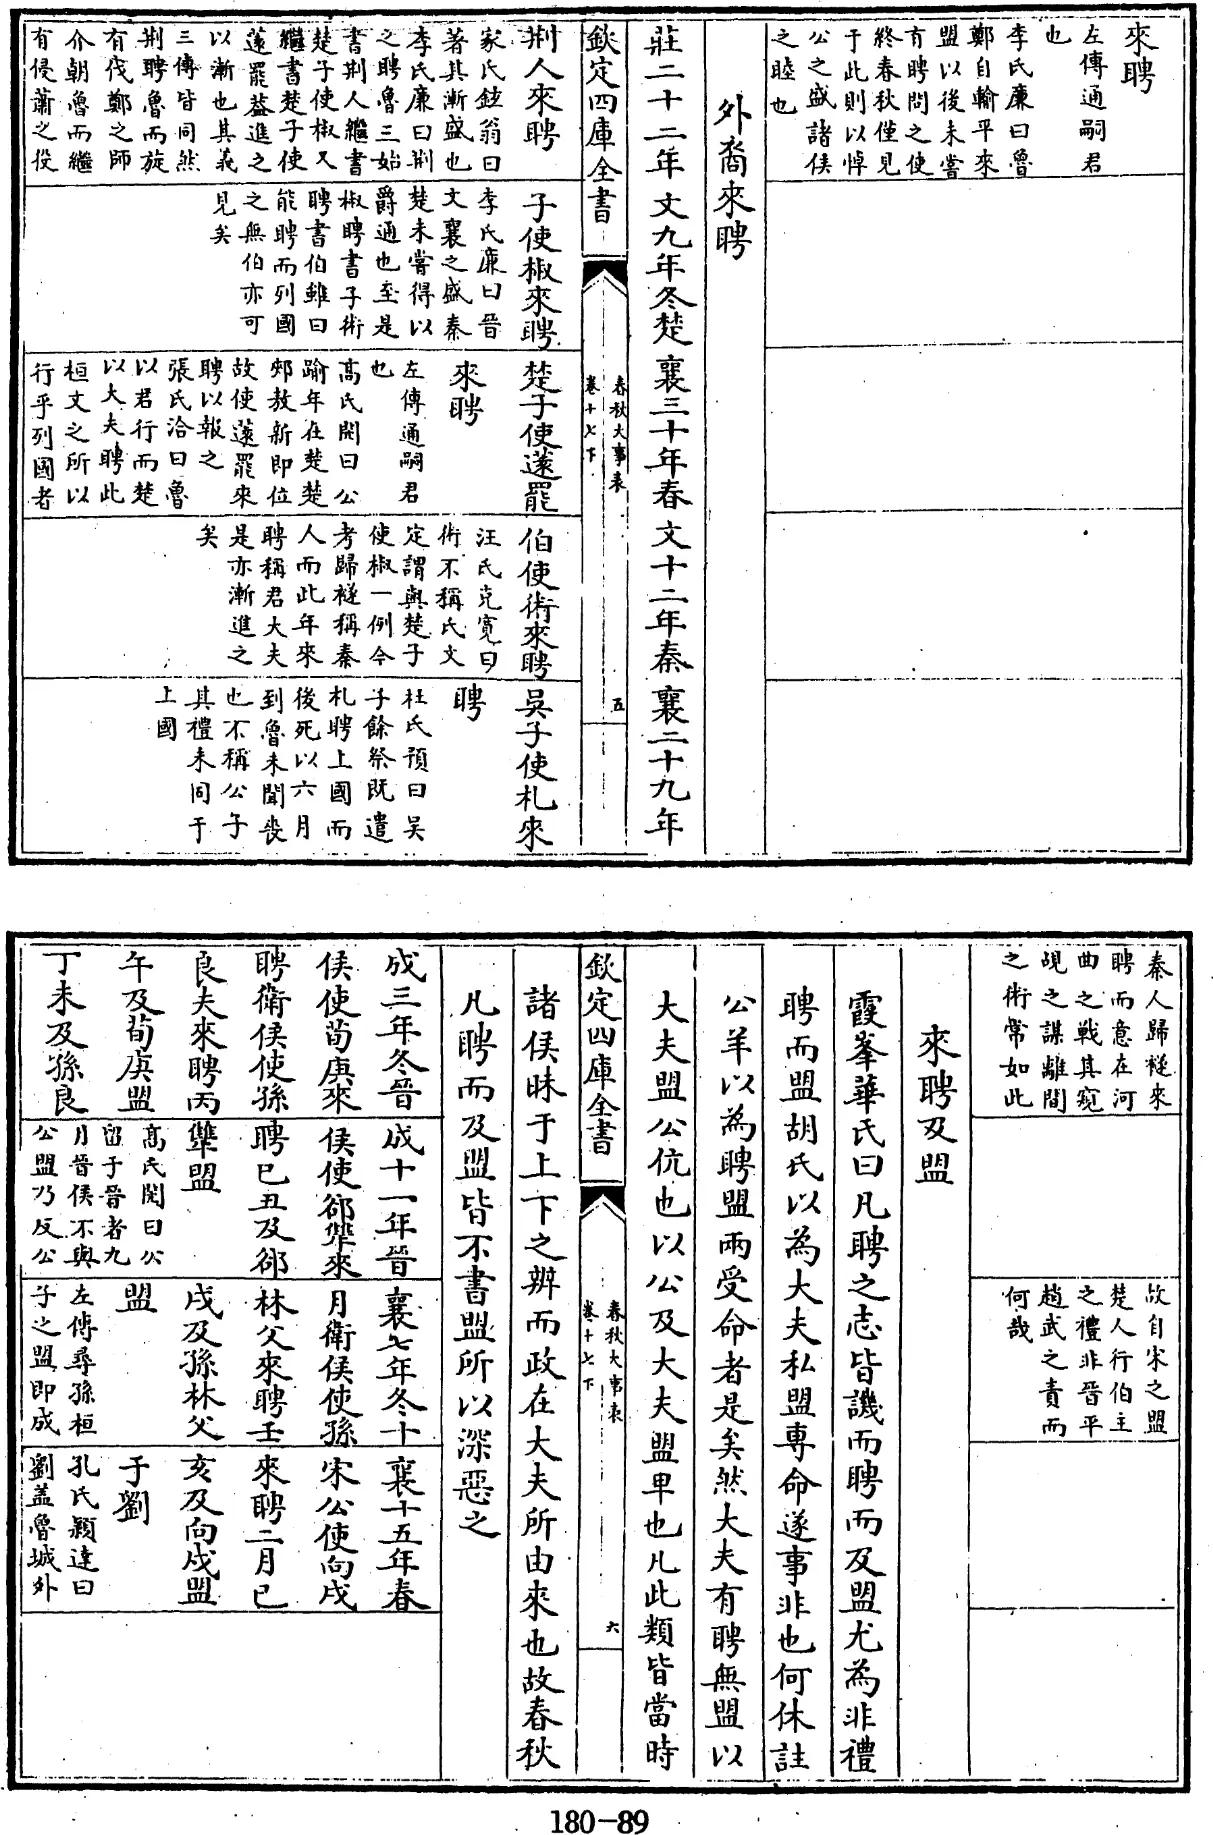 來聘
左傳通嗣君
也
李氏廉曰魯
鄭自輸平來
盟以後未嘗
有聘問之使
終春秋僅見
于此則以悼
公之盛諸侯
之睦也
外裔來聘
莊二十二年
文九年冬楚
襄三十年春
文十二年秦
襄二十九年
欽定四庫全書
春秋大事表
卷十七下
五
荆人來聘
家氏鉉翁曰
著其漸盛也
李氏廉曰荆
之聘魯三始
書荆人繼書
楚子使椒又
繼書楚子使
薳罷葢進之
以漸也其義
三傳皆同然
荆聘魯而旋
有伐鄭之師
介朝魯而繼
有侵蕭之役
子使椒來聘
李氏廉曰晉
文襄之盛秦
楚未嘗得以
爵通也至是
椒聘書子術
聘書伯雖曰
能聘而列國
之無伯亦可
見矣
楚子使薳罷
來聘
左傳通嗣君
也
髙氏閌曰公
踰年在楚楚
郟敖新即位
故使薳罷來
聘以報之
張氏洽曰魯
以君行而楚
以大夫聘此
桓文之所以
行乎列國者
伯使術來聘
汪氏克寛曰
術不稱氏文
定謂與楚子
使椒一例今
考歸襚稱秦
人而此年來
聘稱君大夫
是亦漸進之
矣
吳子使札來
聘
杜氏預曰吳
子餘祭既遣
札聘上國而
後死以六月
到魯未聞喪
也不稱公子
其禮未同于
上國
秦人歸襚來
聘而意在河
曲之戰其窺
覘之謀離間
之術常如此
故自宋之盟
楚人行伯主
之禮非晉平
趙武之責而
何哉
來聘及盟
霞峯華氏曰凡聘之志皆譏而聘而及盟尤為非禮
聘而盟胡氏以為大夫私盟專命遂事非也何休註
公羊以為聘盟兩受命者是矣然大夫有聘無盟以
大夫盟公伉也以公及大夫盟卑也凡此類皆當時
欽定四庫全書
春秋大事表
卷十七下
六
諸侯昧于上下之辨而政在大夫所由來也故春秋
凡聘而及盟皆不書盟所以深惡之
成三年冬晉
侯使荀庚來
聘衛侯使孫
良夫來聘丙
午及荀庚盟
丁未及孫良
成十一年晉
侯使郤犫來
聘已丑及郤
犫盟
髙氏閌曰公
留于晉者九
月晉侯不與
公盟乃反公
襄七年冬十
月衛侯使孫
林父來聘壬
戌及孫林父
盟
左傳尋孫桓
子之盟即成
襄十五年春
宋公使向戌
來聘二月已
亥及向戌盟
于劉
孔氏穎達曰
劉蓋魯城外
180-89